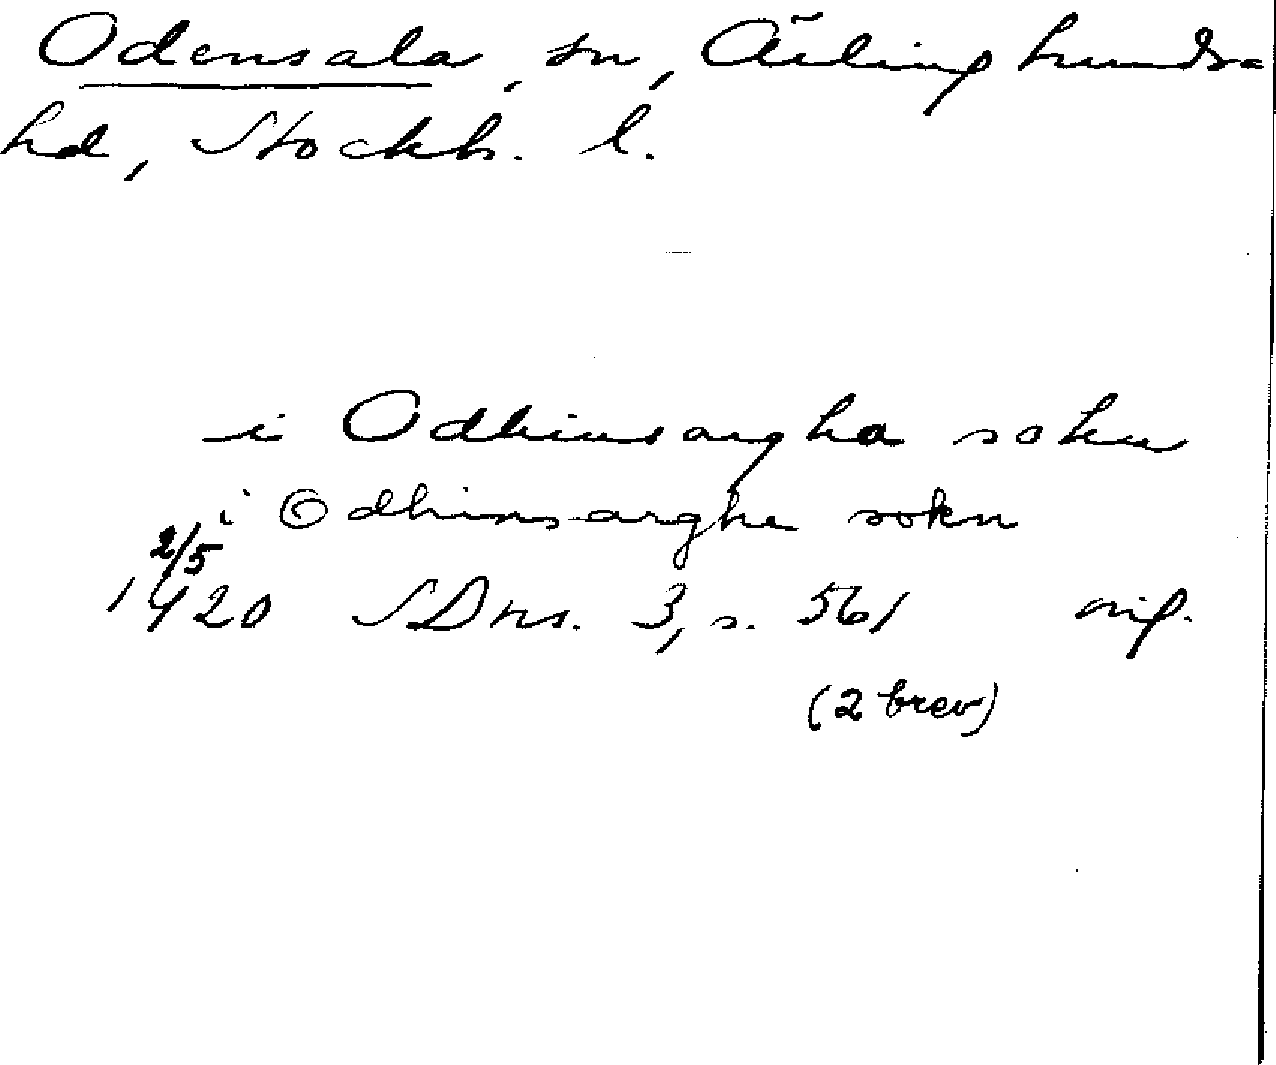 Odensala, sn, Ärlinghundra
hd, Stockh. l.
i Odhinsargha sokn
i Odhinsarghe sokn
2/5
1420 SDns. 3, s. 561 orig.
(2 brev)